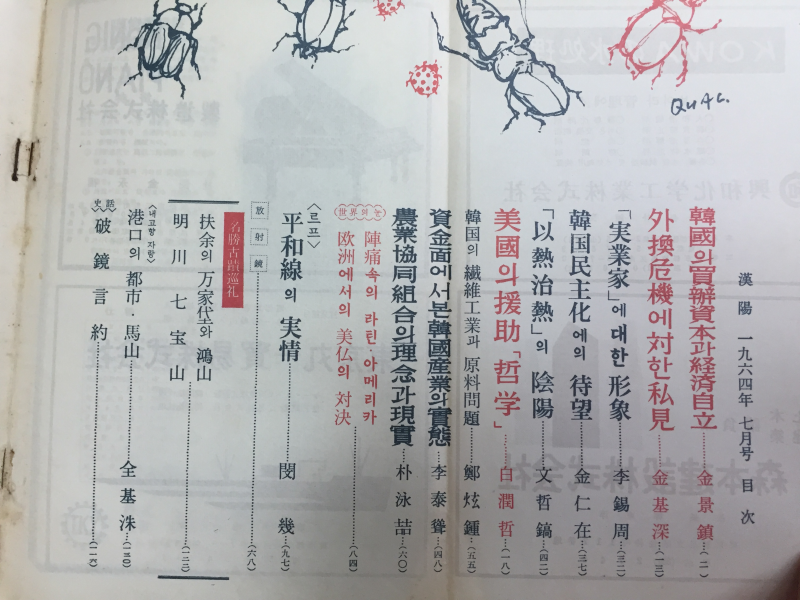 QUAC.
漢陽 一九六四年 七月号 目次
韓國의 買辦資本과 経済自立……金景鎮…(二)
外換危機에 対한 私見……金基深…(一三)
「実業家」에 대한 形象……李錫周…(三二)
韓国民主化에의 待望……金仁在…(三七)
「以熱治熱」의 陰陽……文哲鎬…(四二)
美國의 援助「哲学」……白潤哲…(一八)
韓国의 繊維工業과 原料問題…鄭炫鍾…(五五)
資金面에서 본 韓國産業의 實態…李泰聳…(四八)
農業協同組合의 理念과 現實…朴泳喆…(六〇)
(世界의 눈)
陣痛속의 라틴·아메리카
欧洲에서의 美仏의 対決……(八四)
〈르포〉
平和線의 実情……閔幾…(九七)
放射鏡……(六八)
名勝古蹟巡礼
扶余의 万家垈와 鴻山
明川七宝山……(一二二)
〈내고향 자랑〉
港口의 都市·馬山……全基洙…(一三〇)
史話
破鏡言約……(一一六)